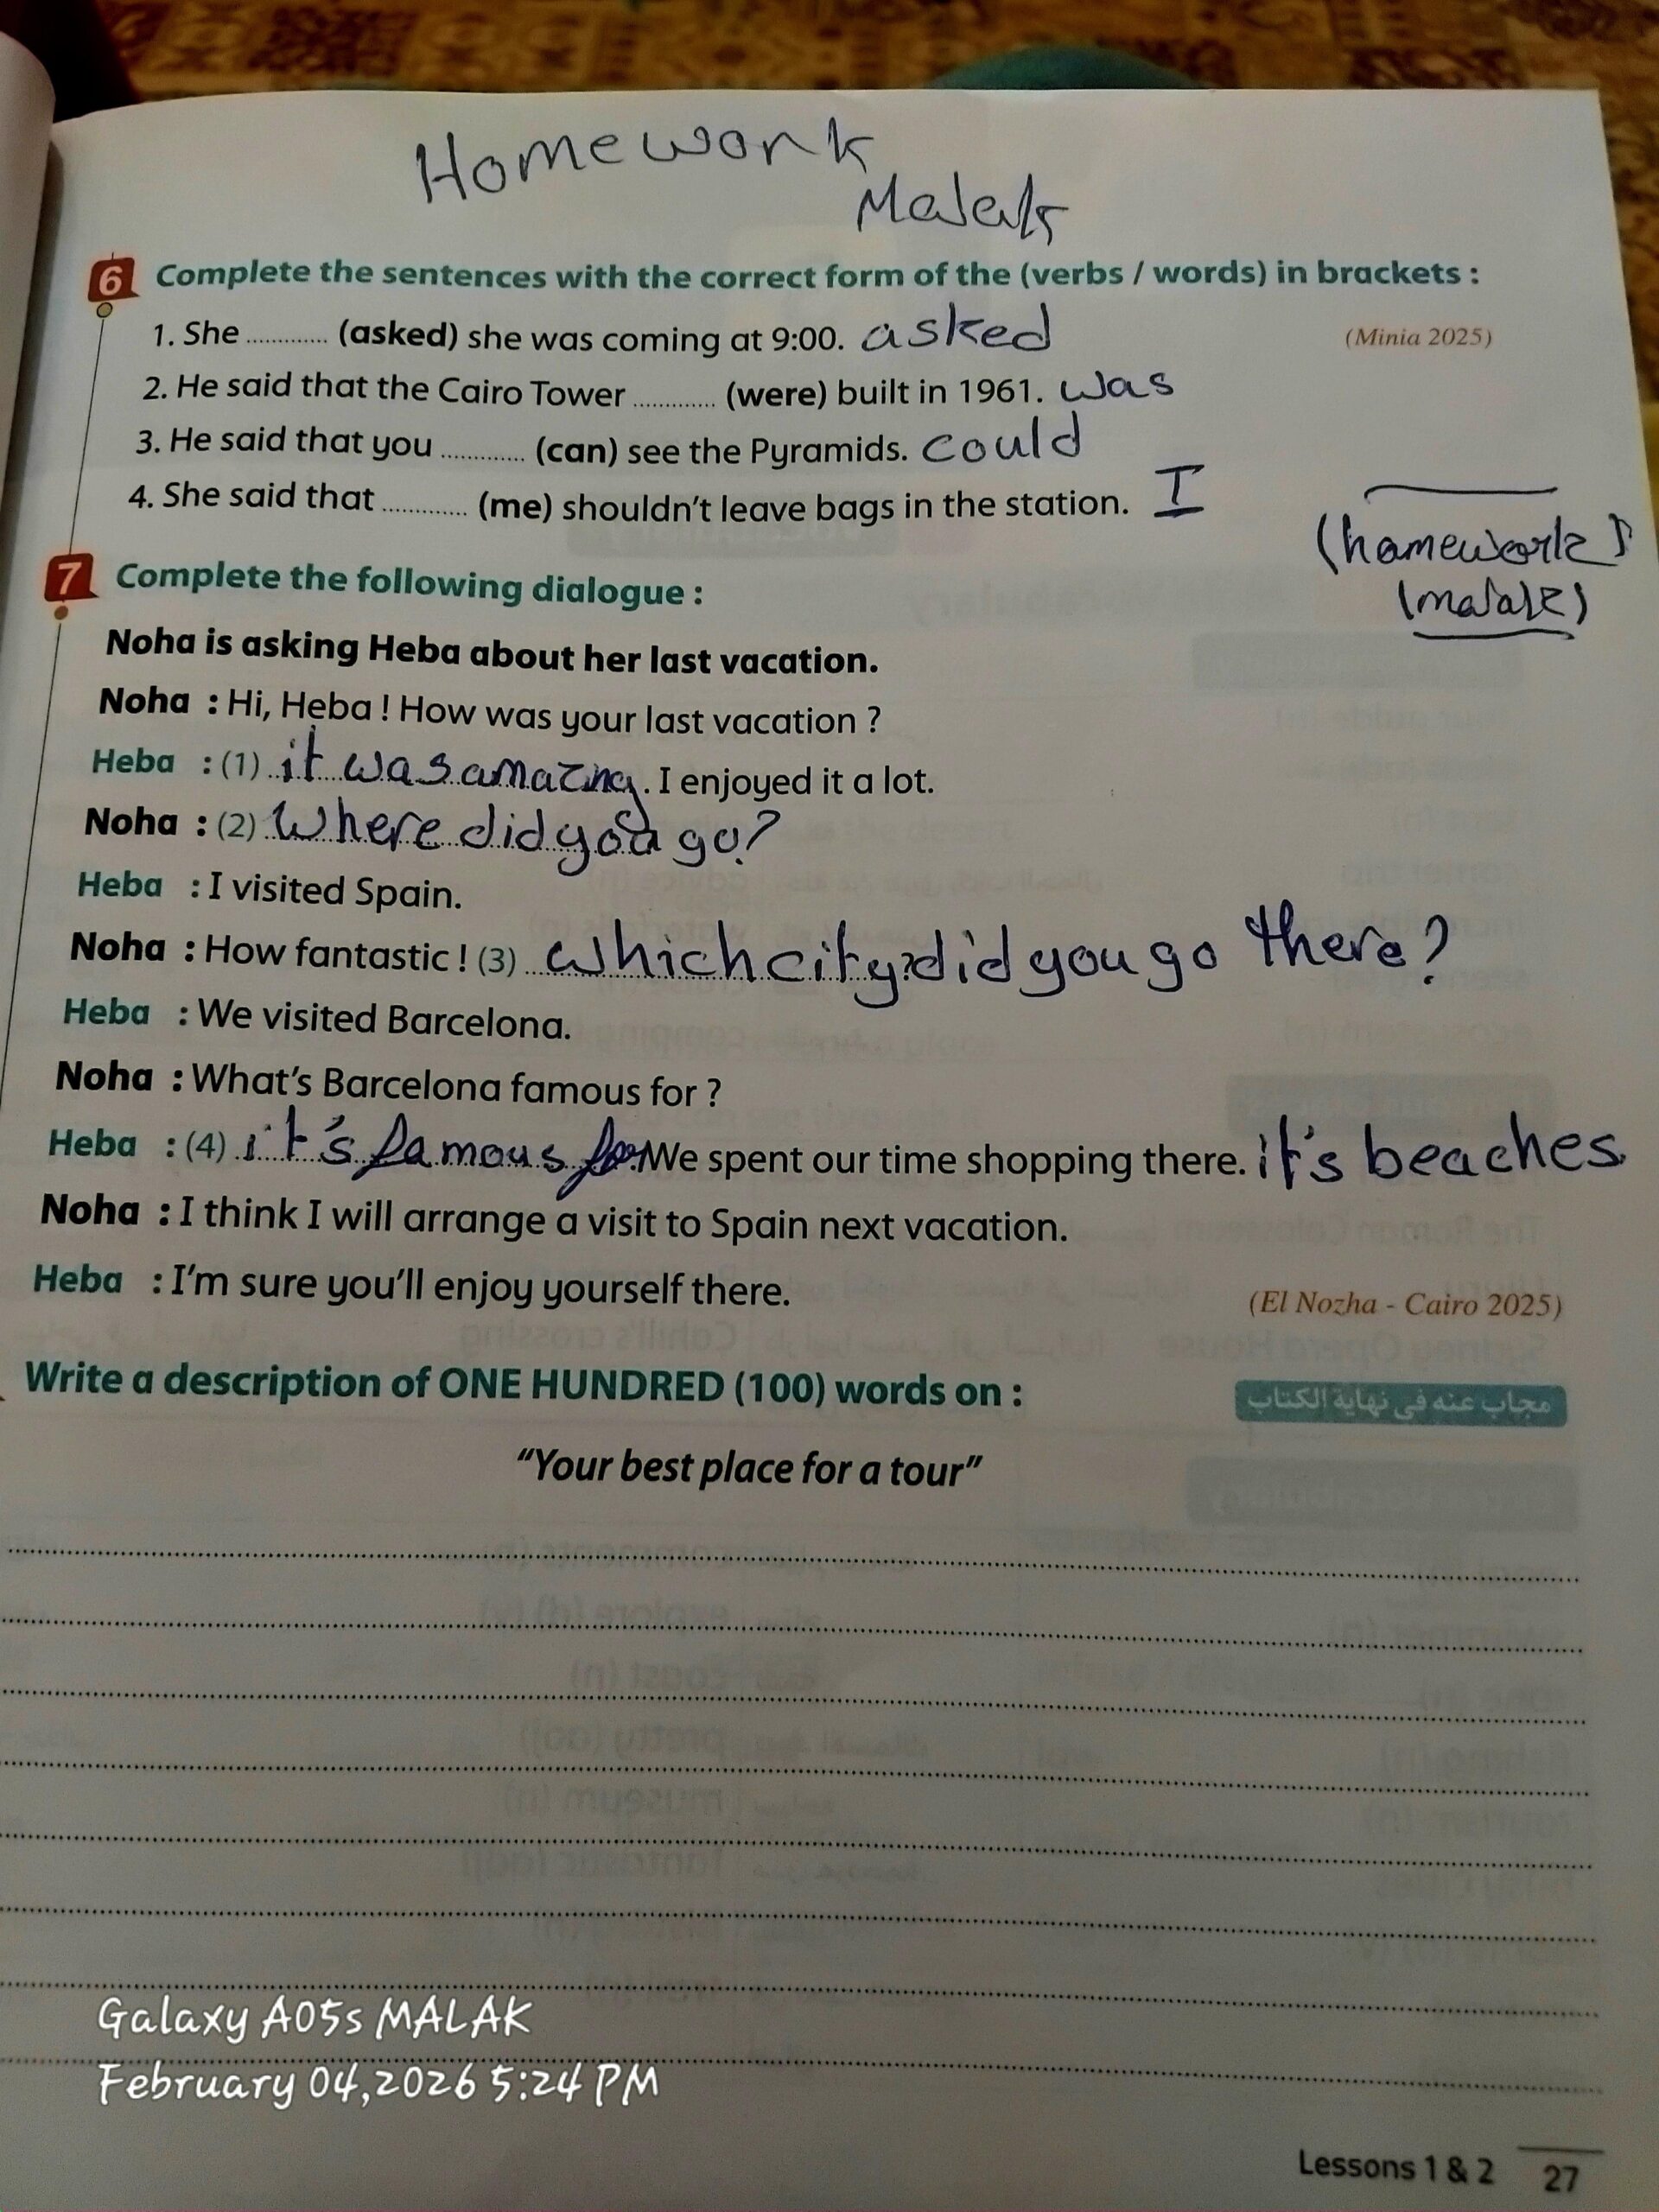 Homework
Malak
6 Complete the sentences with the correct form of the (verbs / words) in brackets :
1. She ............ (asked) she was coming at 9:00. asked (Minia 2025)
2. He said that the Cairo Tower ............ (were) built in 1961. was
3. He said that you ............ (can) see the Pyramids. could
4. She said that ............ (me) shouldn't leave bags in the station. I
(homework)
(malak)
7 Complete the following dialogue :
Noha is asking Heba about her last vacation.
Noha : Hi, Heba ! How was your last vacation ?
Heba : (1) it was amazing. I enjoyed it a lot.
Noha : (2) Where did you go?
Heba : I visited Spain.
Noha : How fantastic ! (3) which city did you go there?
Heba : We visited Barcelona.
Noha : What's Barcelona famous for ?
Heba : (4) it's famous for. We spent our time shopping there. it's beaches
Noha : I think I will arrange a visit to Spain next vacation.
Heba : I'm sure you'll enjoy yourself there.
(El Nozha - Cairo 2025)
Write a description of ONE HUNDRED (100) words on :
مجاب عنه فى نهاية الكتاب
"Your best place for a tour"
Galaxy A05s MALAK
February 04,2026 5:24 PM
Lessons 1 & 2 27